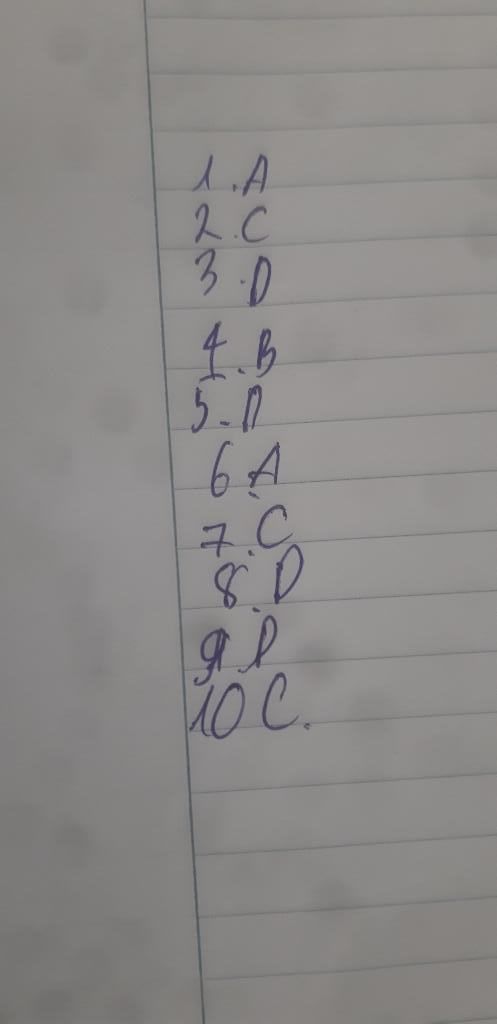 1.A
2.C
3.D
4.B
5.D
6.A
7.C
8.D
9.D
10 C.